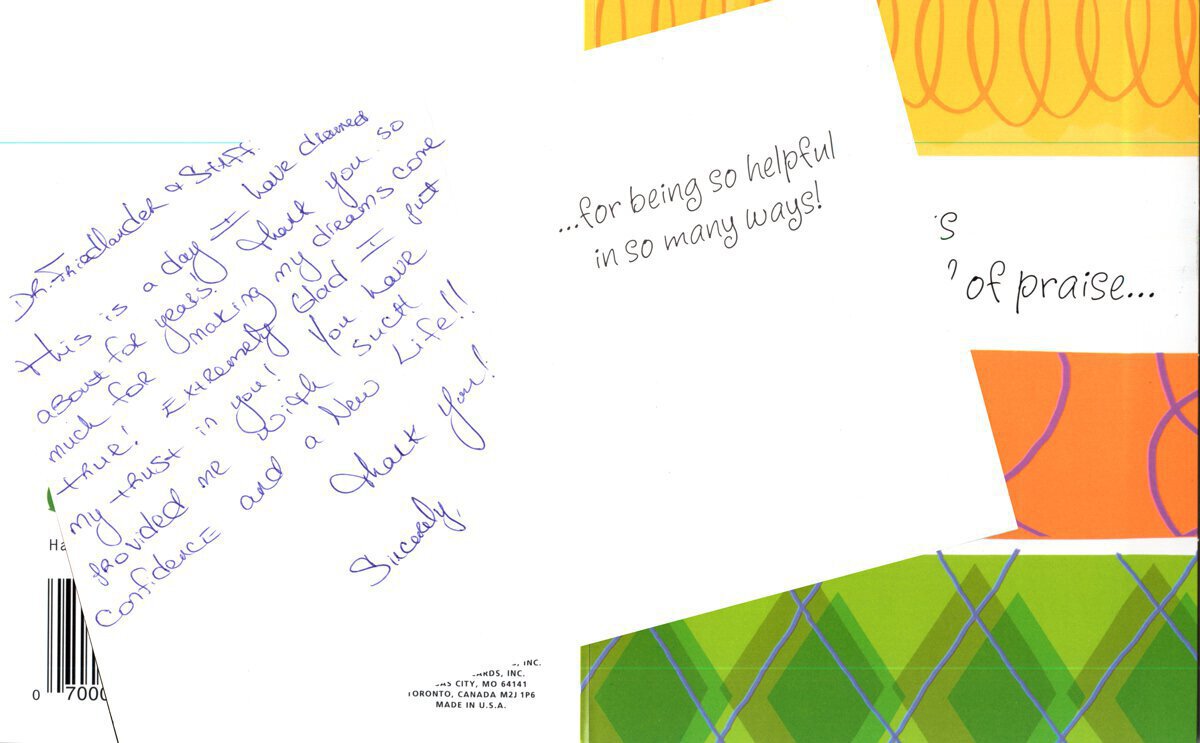 DR. Friedlander & Staff.
This is a day I have dreamed
about for years! Thank you so
much for making my dreams come
true! Extremely Glad I put
my trust in you! You have
provided me with such
confidence and a New Life!!
Thank You!
Sincerely,
...for being so helpful
in so many ways!
of praise...
Ha
0 7000
, INC.
ARDS, INC.
AS CITY, MO 64141
TORONTO, CANADA M2J 1P6
MADE IN U.S.A.